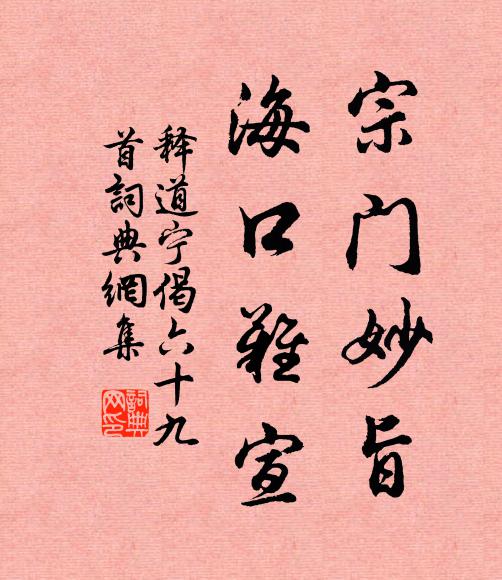 宗门妙旨
海口难宣
释道宁偈六十九
首詞典網集
詞典
网印